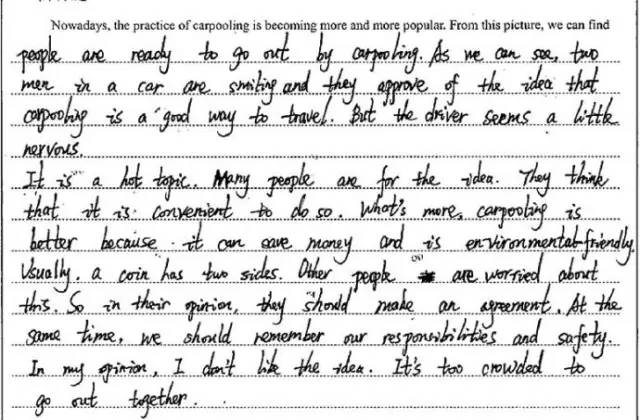 Nowadays, the practice of carpooling is becoming more and more popular. From this picture, we can find
people are ready to go out by carpooling. As we can see, two
men in a car are smiling and they approve of the idea that
carpooling is a good way to travel. But the driver seems a little
nervous.
It is a hot topic. Many people are for the idea. They think
that it is convenient to do so. What's more, carpooling is
better because it can save money and is environmental-friendly.
Usually, a coin has two sides. Other people are worried about
this. So in their opinion, they should make an agreement. At the
same time, we should remember our responsibilities and safety.
In my opinion, I don't like the idea. It's too crowded to
go out together.